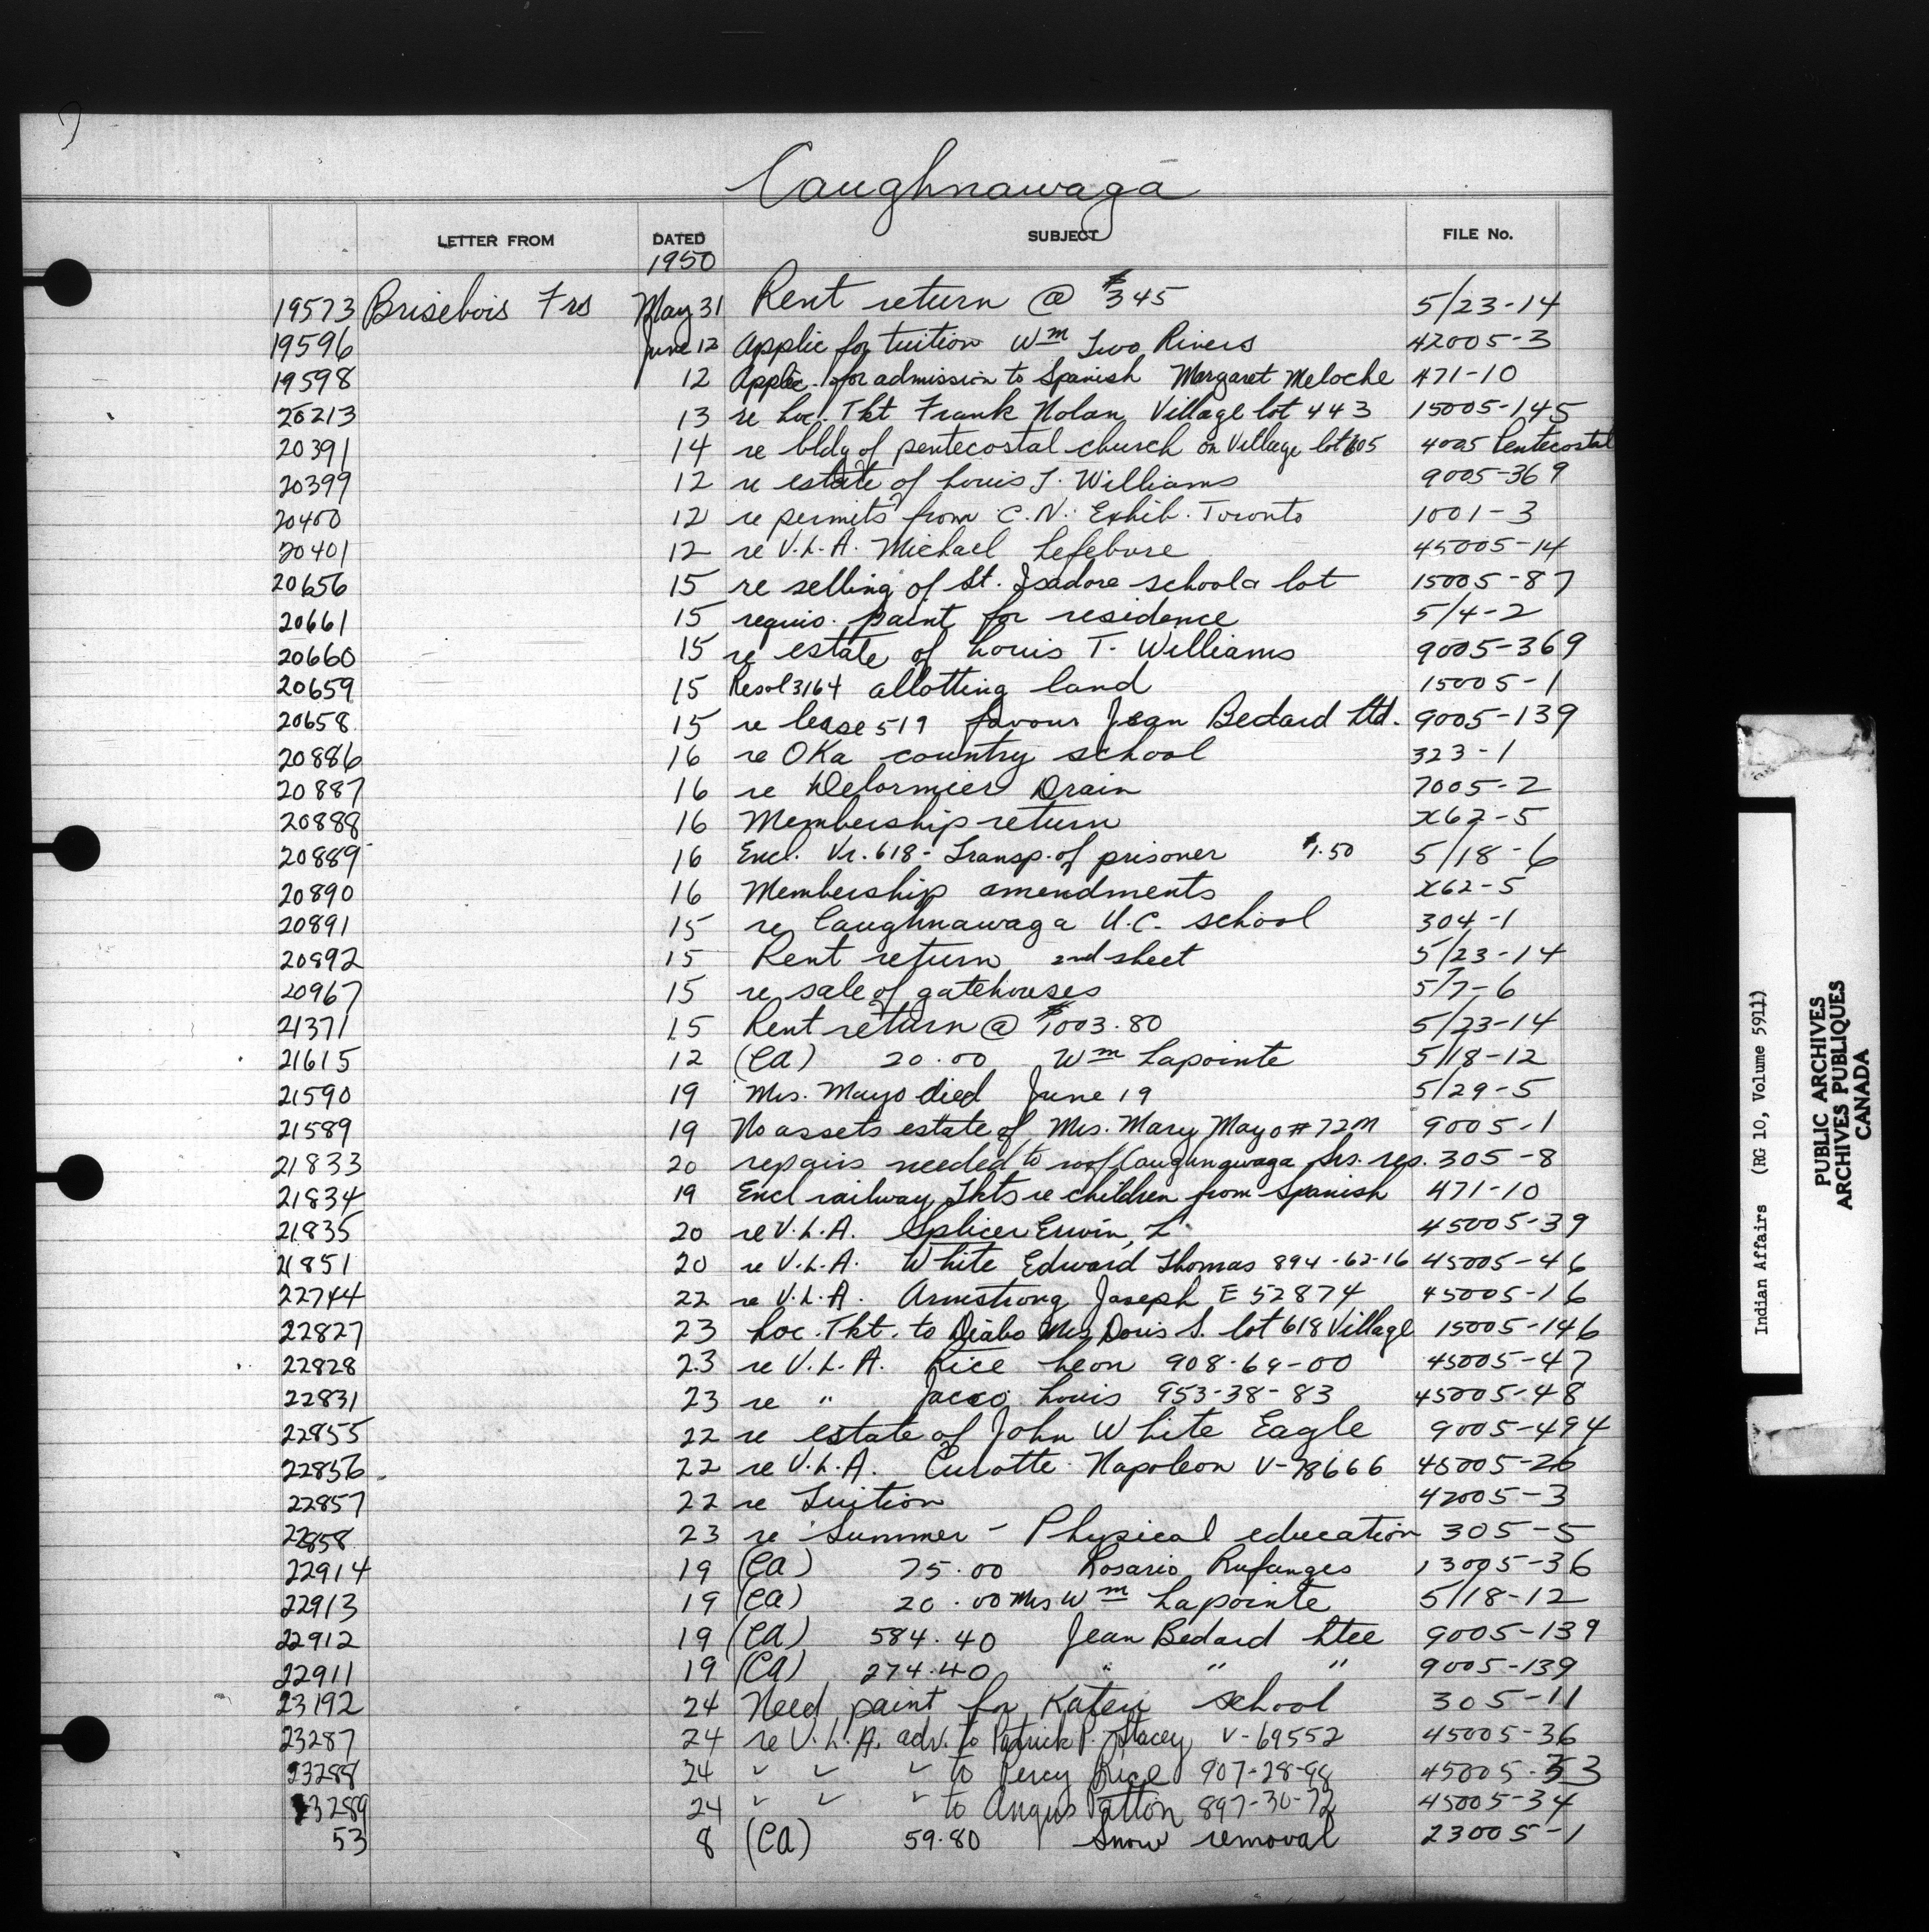 Caughnawaga
LETTER FROM DATED SUBJECT FILE No.
1950
19573 Brisebois Frs May 31 Rent return @ $345 5/23-14
19596 June 12 Applic for tuition Wm Two Rivers 42005-3
19598 12 Applic. for admission to Spanish Margaret Meloche 471-10
20213 13 re Loc. Tkt Frank Nolan Village lot 443 15005-145
20391 14 re bldg of pentecostal church on Village lot 605 4005 Pentecostal
20399 12 re estate of Louis T. Williams 9005-369
20400 12 re permits from C.N. Exhib. Toronto 1001-3
20401 12 re V.L.A. Michael Lefebvre 45005-14
20656 15 re selling of St. Isadore school & lot 15005-87
20661 15 requis. paint for residence 5/4-2
20660 15 re estate of Louis T. Williams 9005-369
20659 15 Resol 3164 allotting land 15005-1
20658 15 re lease 519 favour Jean Bedard Ltd. 9005-139
20886 16 re Oka country school 323-1
20887 16 re Delormier Drain 7005-2
20888 16 Membership return x62-5
20889 16 Encl. Vr. 618 - Transp. of prisoner $1.50 5/18-6
20890 16 Membership amendments x62-5
20891 15 re Caughnawaga U.C. school 304-1
20892 15 Rent return 2nd sheet 5/23-14
20967 15 re sale of gatehouses 5/7-6
21371 15 Rent return @ $1003.80 5/23-14
21615 12 (CA) 20.00 Wm Lapointe 5/18-12
21590 19 Mrs. Mayo died June 19 5/29-5
21589 19 No assets estate of Mrs. Mary Mayo # 72M 9005-1
21833 20 repairs needed to roof Caughnawaga Srs. res. 305-8
21834 19 Encl railway Tkts re children from Spanish 471-10
21835 20 re V.L.A. Splicer Erwin, L. 45005-39
21851 20 re V.L.A. White Edward Thomas 894-62-16 45005-46
22744 22 re V.L.A. Armstrong Joseph E 52874 45005-16
22827 23 Loc. Tkt. to Diabo Mrs Doris S. lot 618 Village 15005-146
22828 23 re V.L.A. Rice Leon 908-69-00 45005-47
22831 23 re " Jacco Louis 953-38-83 45005-48
22855 22 re estate of John White Eagle 9005-494
22856 22 re V.L.A. Curotte Napoleon V-78666 45005-26
22857 22 re Tuition 42005-3
22858 23 re Summer - Physical education 305-5
22914 19 (CA) 75.00 Rosario Rufanges 13005-36
22913 19 (CA) 20.00 Mrs Wm Lapointe 5/18-12
22912 19 (CA) 584.40 Jean Bedard Ltee 9005-139
22911 19 (CA) 274.40 " " " 9005-139
23192 24 Need paint for Kateri school 305-11
23287 24 re V.L.A. adv. to Patrick P. Stacey V-69552 45005-36
23288 24 " " " to Percy Rice 907-28-98 45005-53
23289 24 " " " to Angus Patton 897-30-72 45005-34
53 8 (CA) 59.80 Snow removal 23005-1
Indian Affairs (RG 10, Volume 5911)
PUBLIC ARCHIVES
ARCHIVES PUBLIQUES
CANADA